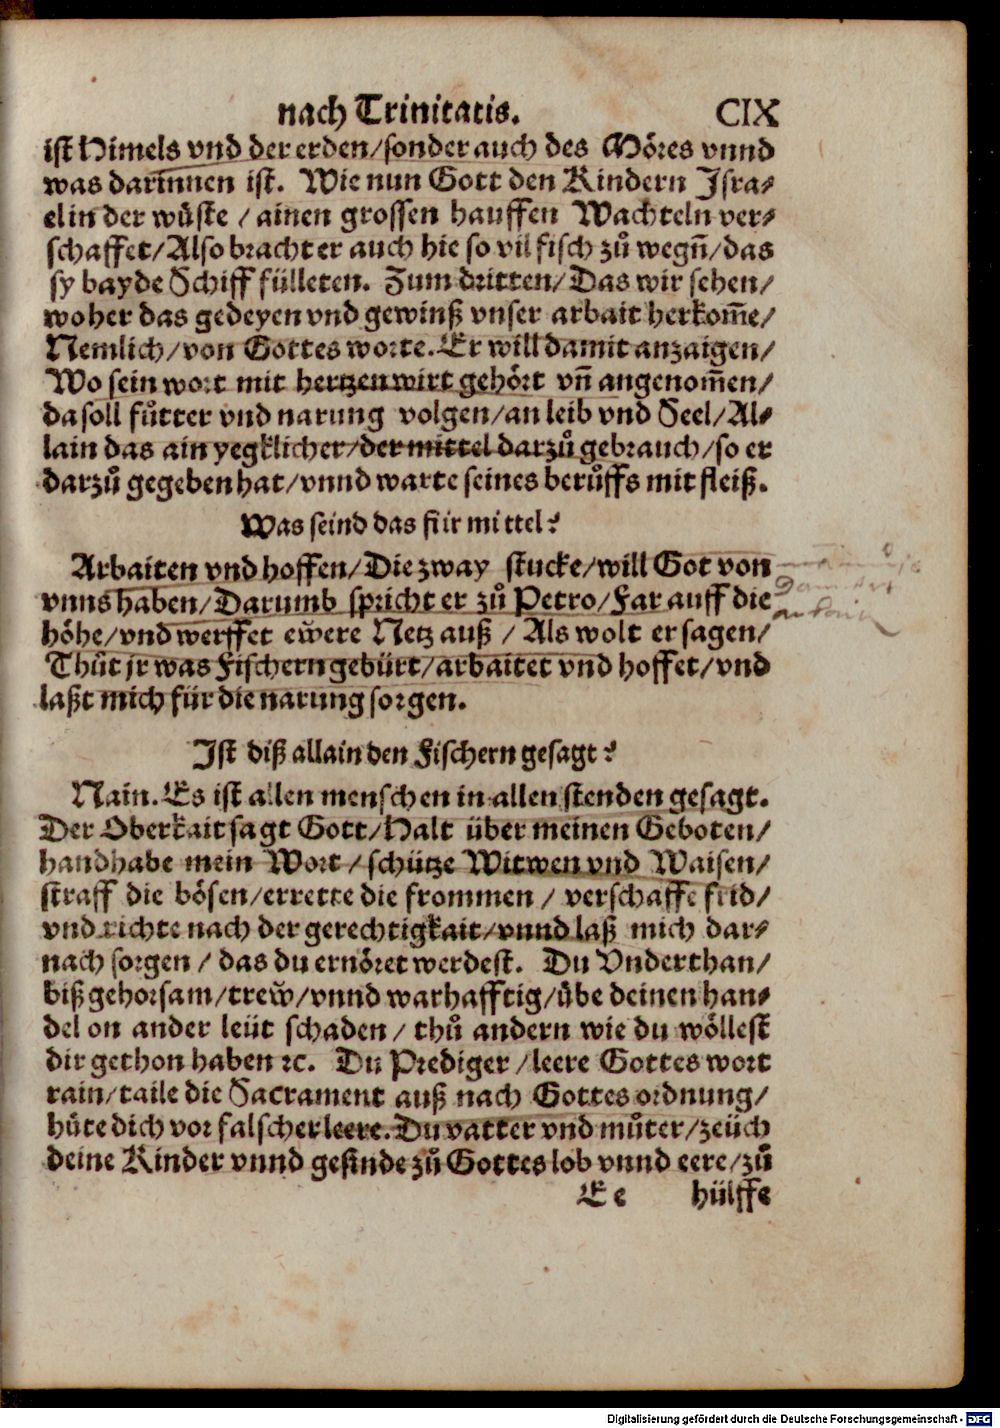 nach Trinitatis. CIX
ist Himels vnd der erden/sonder auch des Möres vnnd
was darinnen ist. Wie nun Gott den Kindern Isra-
el in der wüste / ainen grossen hauffen Wachteln ver-
schaffet/Also bracht er auch hie so vil fisch zů wegñ/das
sy bayde Schiff fülleten. Zum dritten/Das wir sehen/
woher das gedeyen vnd gewinß vnser arbait herkom̃e/
Nemlich/von Gottes worte. Er will damit anzaigen/
Wo sein wort mit hertzen wirt gehört vñ angenom̃en/
da soll fůtter vnd narung volgen/an leib vnd Seel/Al-
lain das ain yegklicher/der mittel darzů gebrauch/so er
darzů gegeben hat/vnnd warte seines berůffs mit fleiß.
Was seind das für mittel?
Arbaiten vnd hoffen/Die zway stucke/will Got von
vnns haben/Darumb spricht er zů Petro/Far auff die
höhe/vnd werffet ew̌ere Netz auß / Als wolt er sagen/
Thůt jr was Fischern gebürt/arbaitet vnd hoffet/vnd
laßt mich für die narung sorgen.
Ist diß allain den Fischern gesagt?
Nain. Es ist allen menschen in allen stenden gesagt.
Der Oberkait sagt Gott/Halt über meinen Geboten/
handhabe mein Wort / schütze Witwen vnd Waisen/
straff die bösen/errette die frommen / verschaffe frid/
vnd richte nach der gerechtigkait/vnnd laß mich dar-
nach sorgen / das du ernöret werdest. Du Vnderthan/
biß gehorsam/trew̌/vnnd warhafftig/übe deinen han-
del on ander leüt schaden / thů andern wie du wöllest
dir gethon haben ꝛc. Du Prediger / leere Gottes wort
rain/taile die Sacrament auß nach Gottes ordnung/
hüte dich vor falscher leere. Du vatter vnd můter/zeüch
deine Kinder vnnd gesinde zů Gottes lob vnnd eere/zů
Ee hülffe
Digitalisierung gefördert durch die Deutsche Forschungsgemeinschaft - DFG